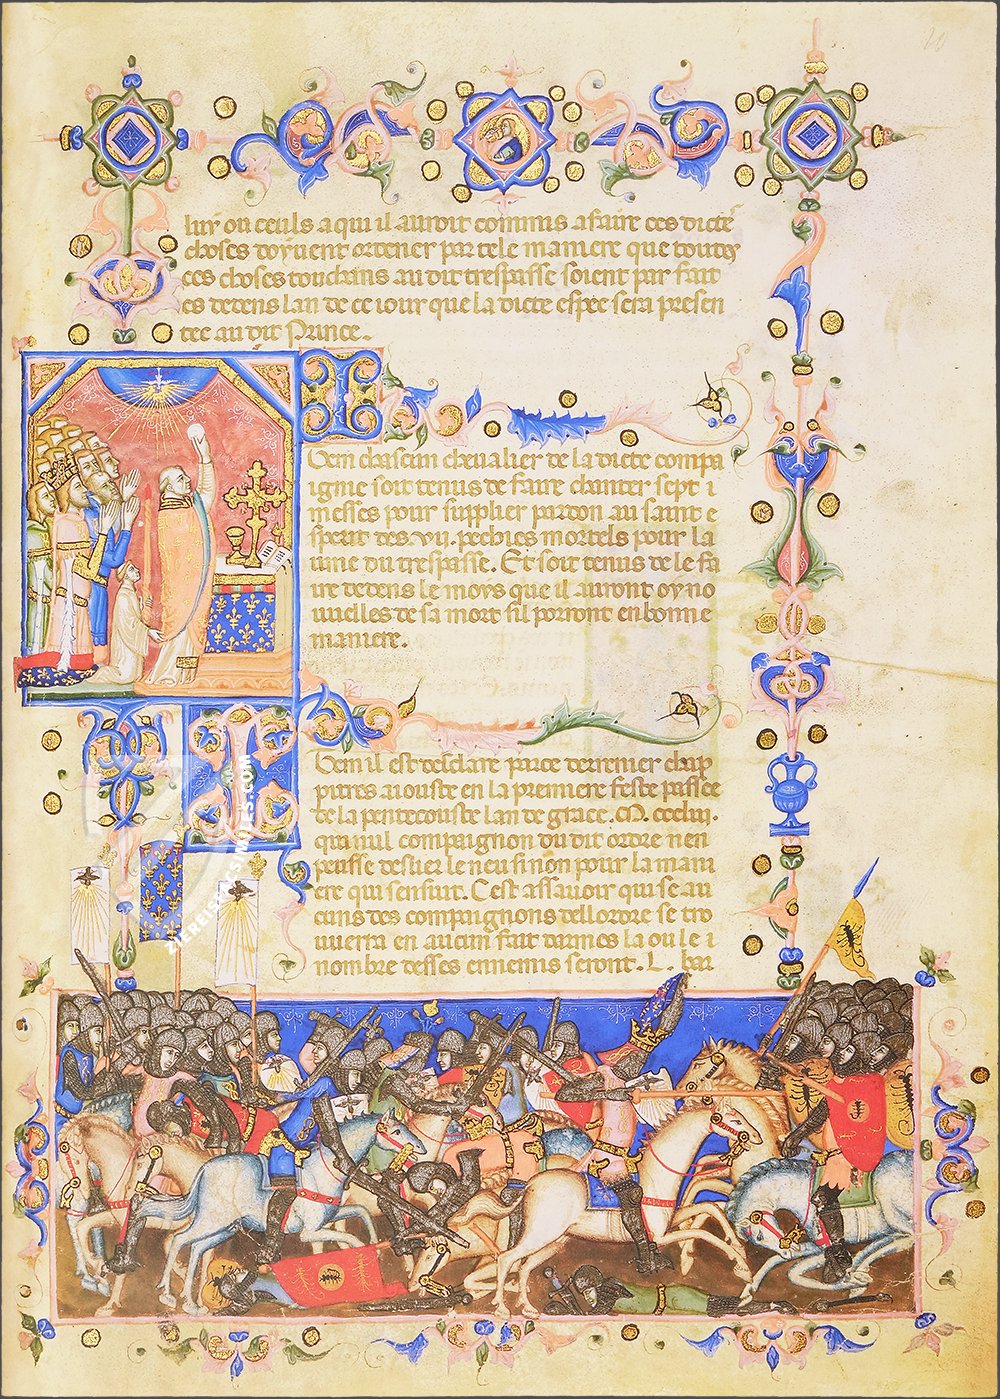 luy ou ceuls a qui il auroit commis a faire ces dicte
choses doyuent ordener par tele maniere que toutes
ces choses touchans au dit trespasse soient par fait
es dedens lan de ce iour que la dicte espee sera presen
tee au dit Prince.
I
tem chascun chevalier de la dicte compa
ignie soit tenus de faire chanter sept i
messes pour supplier pardon au saint e
sperit des vij. pechies mortels pour la
ame du trespasse. Et soit tenus de le fa
ire dedens le moys que il auront oy no
uuelles de sa mort sil porront en bonne
maniere.
I
tem il est desclare par ce derrenier chap
pitres aiouste en la premiere feste passee
de la pentecouste lan de grace. M. ccc liij.
qui nul compaignon du dit ordre nen
peusse deslier le neu sinon pour la mani
ere qui sensuit. Cest assauoir qui se au
cuns des compaignons dell ordre se tro
uuera en aucun fait darmes la ou le i
nombre desses ennemis seront. L. bar
ZIEREIS FACSIMILES.COM